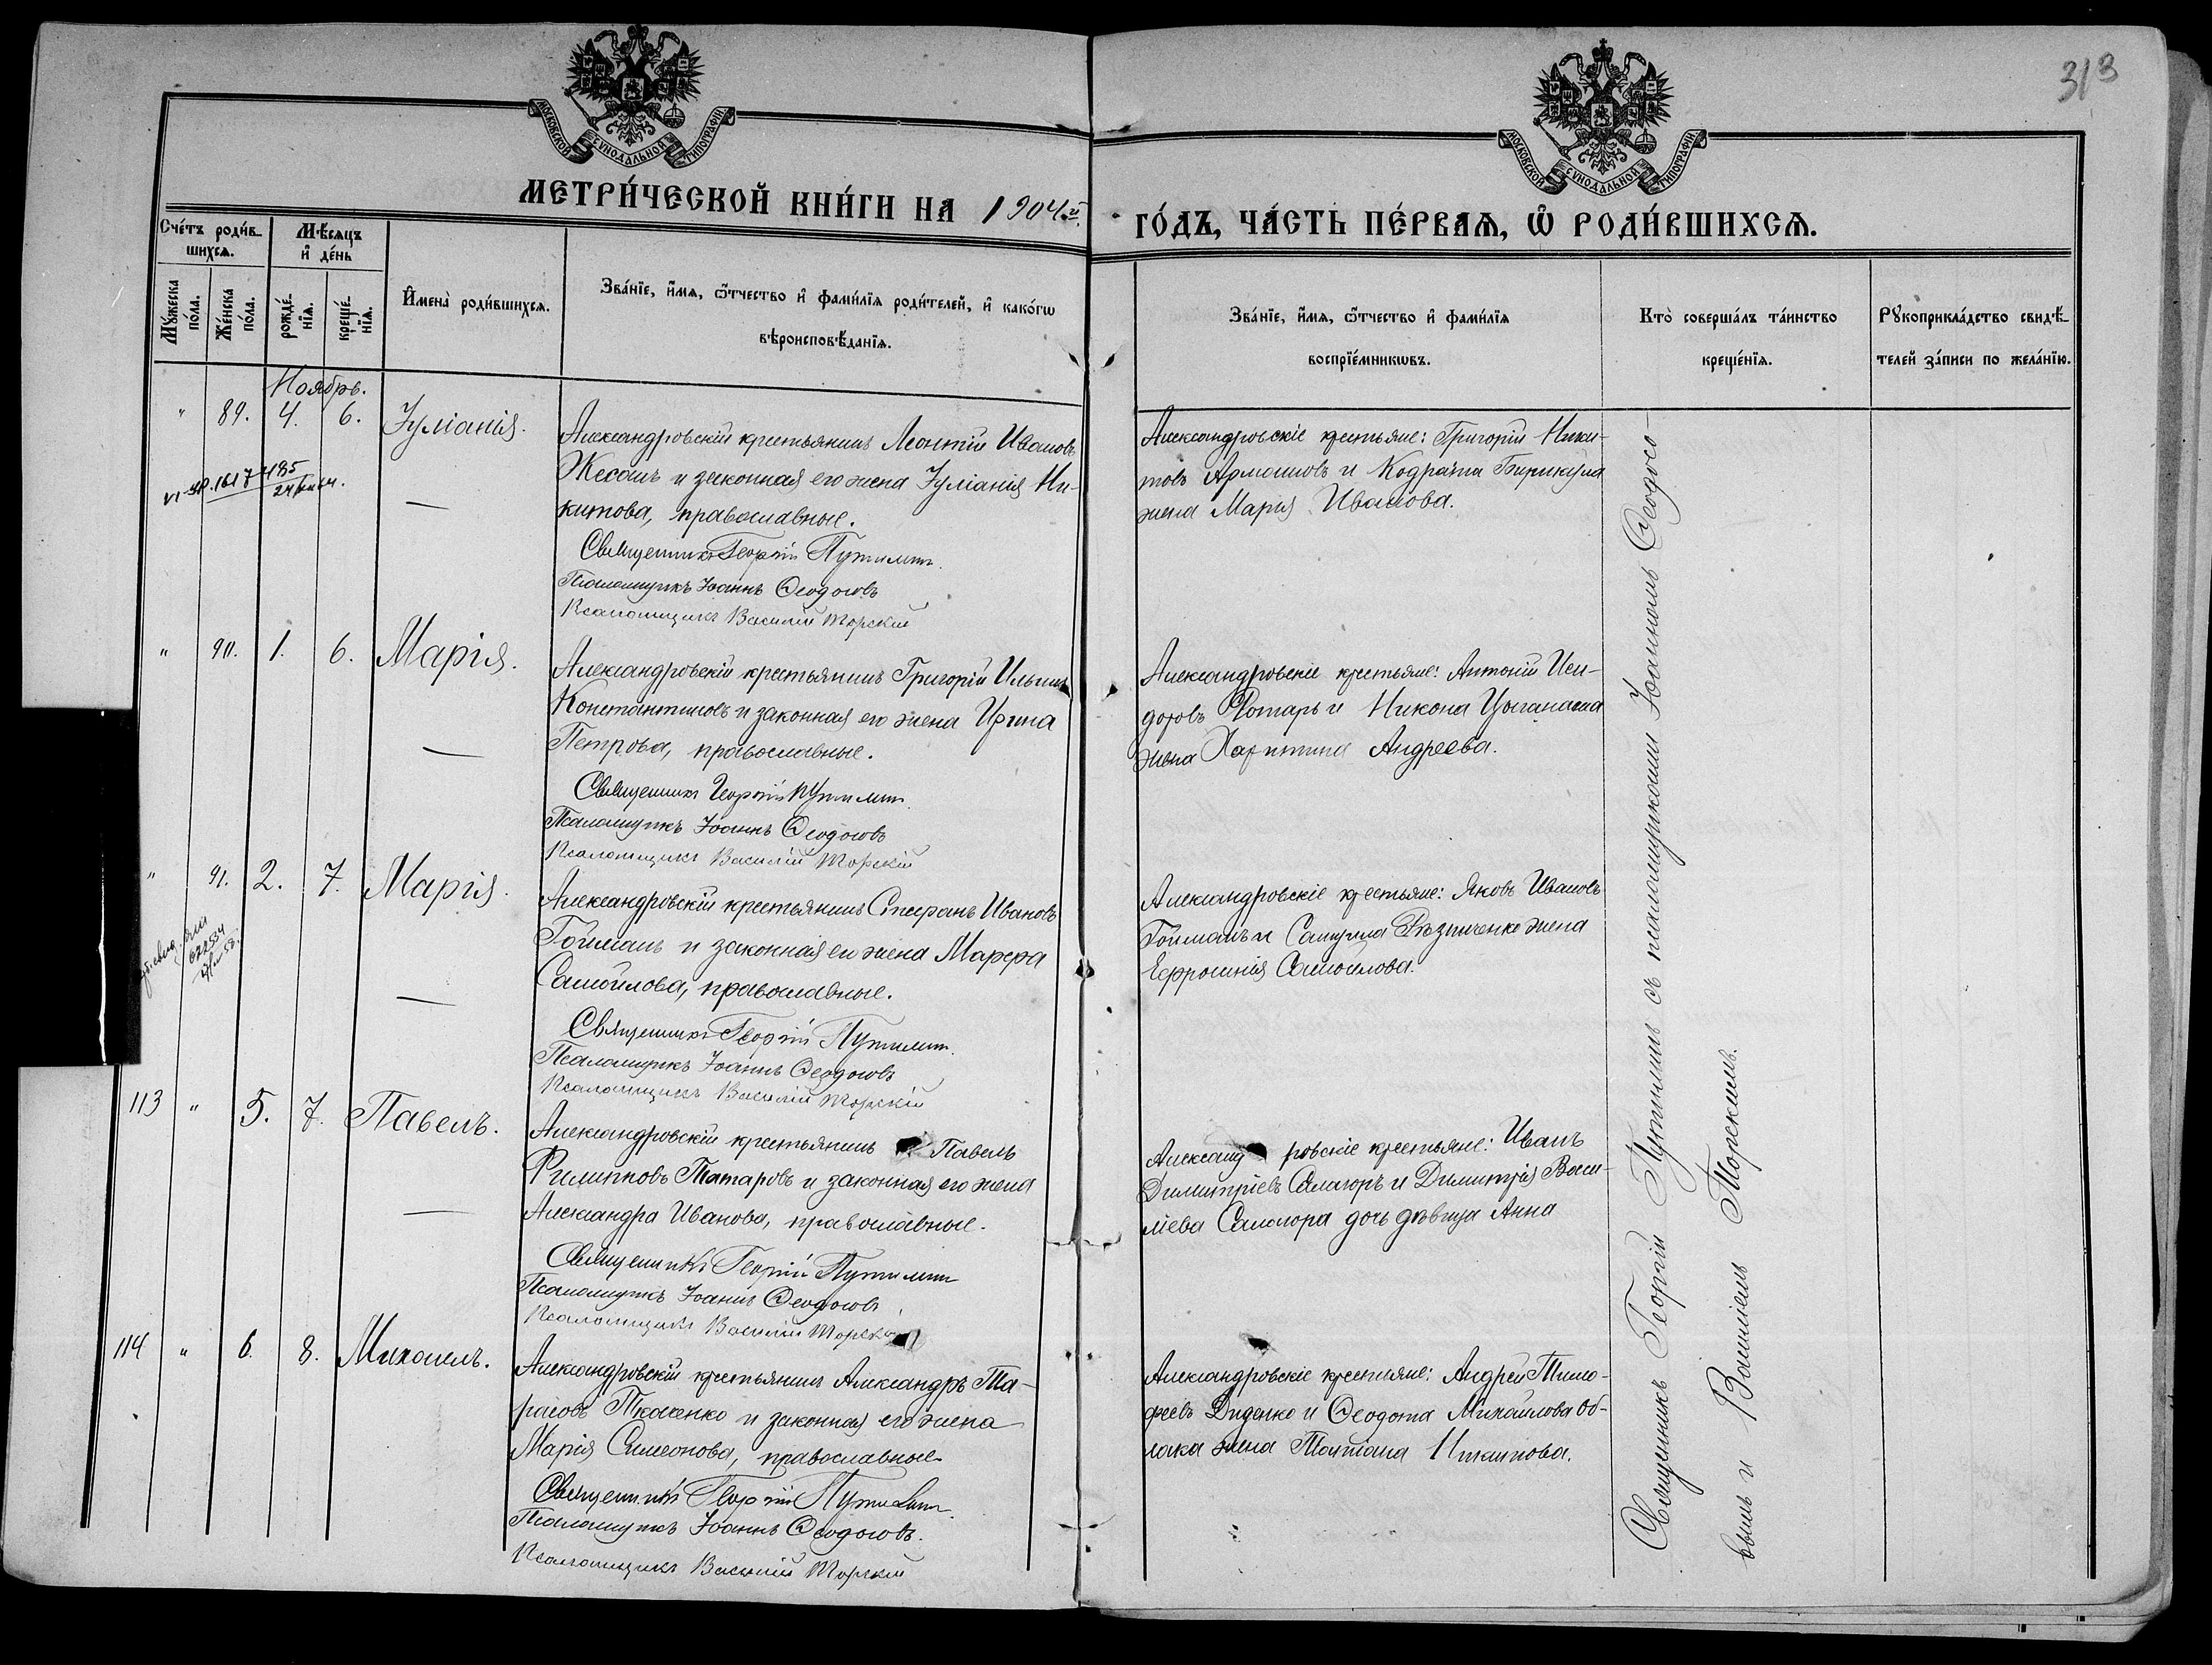 313
МОСКОВСКОЙ СУНОДАЛЬНОЙ ТИПОГРАФІИ.
МОСКОВСКОЙ СУНОДАЛЬНОЙ ТИПОГРАФІИ.
МЕТРИ́ЧЕСКОЙ КНИ́ГИ НА 1904й
ГО́ДЪ, ЧА́СТЬ ПЕ́РВАѦ, Ѽ РОДИ́ВШИХСѦ.
Сче́тъ роди́в-
шихсѧ.
Мѣ́сѧцъ
и҆ де́нь
Мꙋ́жеска
по́ла.
Же́нска
по́ла.
рожде́-
нїѧ.
креще́-
нїѧ.
И҆мена̀ роди́вшихсѧ.
Зва́нїе, и҆́мѧ, ѻ҆́тчество и҆ фами́лїѧ роди́телей, и҆ како́гѡ
вѣроисповѣ́данїѧ.
Зва́нїе, и҆́мѧ, ѻ҆́тчество и҆ фами́лїѧ
воспрїе́мникѡвъ.
Кто̀ соверша́лъ та́инство
креще́нїѧ.
Рꙋкоприкла́дство свидѣ́-
телей за́писи по жела́нїю.
Ноябрь.
" 89. 4. 6. Іуліанія.
Александровскій крестьянинъ Леонтій Ивановъ
Жесанъ и законная его жена Іуліанія Ни-
китова, православные.
Священникъ Георгій Путилин
Псаломщикъ Іоаннъ Ѳеодосовъ
Псаломщикъ Василій Торскій
Александровскіе крестьяне: Григорій Ники-
товъ Армашовъ и Кодрата Бирикула
жена Марія Иванова.
" 90. 1. 6. Марія.
Александровскій крестьянинъ Григорій Ильинъ
Константиновъ и законная его жена Ирина
Петрова, православные.
Священникъ Георгій Путилин
Псаломщикъ Іоаннъ Ѳеодосовъ
Псаломщикъ Василій Торскій
Александровскіе крестьяне: Антоній Иси-
доровъ Ротарь и Никона Цыганаша
жена Харитина Андреева.
" 91. 2. 7. Марія.
Александровскій крестьянинъ Стефанъ Ивановъ
Гойманъ и законная его жена Марфа
Самойлова, православные.
Священникъ Георгій Путилин
Псаломщикъ Іоаннъ Ѳеодосовъ
Псаломщикъ Василій Торскій
Александровскіе крестьяне: Яковъ Ивановъ
Гойманъ и Самуила Рѣзниченко жена
Ефросинія Самоилова.
113 " 5. 7. Павелъ.
Александровскій крестьянинъ Павелъ
Филипповъ Татаровъ и законная его жена
Александра Иванова, православные.
Священникъ Георгій Путилин
Псаломщикъ Іоаннъ Ѳеодосовъ
Псаломщикъ Василій Торскій
Александровскіе крестьяне: Иванъ
Димитріевъ Саламоръ и Димитрія Васи-
ліева Саламора дочь дѣвица Анна
114 " 6. 8. Михаилъ.
Александровскій крестьянинъ Александръ Та-
расовъ Ткаченко и законная его жена
Марія Симеонова, православные
Священникъ Георгій Путилин
Псаломщикъ Іоаннъ Ѳеодосовъ.
Псаломщикъ Василій Торскій
Александровскіе крестьяне: Андрей Тимо-
феевъ Диденко и Ѳеодота Михайлова Об-
лака жена Татіана Никитова.
Священникъ Георгій Путилинъ съ псаломщиками Іоанномъ Ѳеодосо-
вымъ и Василіемъ Торскимъ.